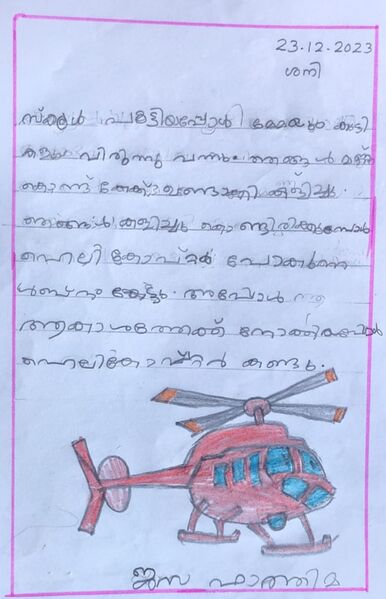 23.12.2023
ശനി
സ്കൂൾ പൂട്ടിയപ്പോൾ മേമയും കുട്ടി
കളും വിരുന്നു വന്നു. ഞങ്ങൾ മണ്ണ്
കൊണ്ട് കേക്ക് ഉണ്ടാക്കി കളിച്ചു.
ഞങ്ങൾ കളിച്ചു കൊണ്ടിരിക്കുമ്പോൾ
ഹെലി കോപ്ടർ പോകുന്ന
ശബ്ദം കേട്ടു. അപ്പോൾ
ആകാശത്തേക്ക് നോക്കിയപ്പോൾ
ഹെലികോപ്റ്റർ കണ്ടു.
ജസ ഫാത്തിമ